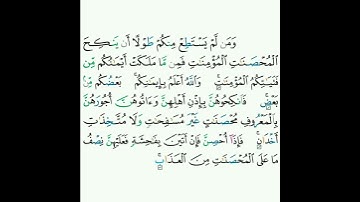 وَمَن لَّمْ يَسْتَطِعْ مِنكُمْ طَوْلًا أَن يَنكِحَ
ٱلْمُحْصَنَٰتِ ٱلْمُؤْمِنَٰتِ فَمِن مَّا مَلَكَتْ أَيْمَٰنُكُم مِّن
فَتَيَٰتِكُمُ ٱلْمُؤْمِنَٰتِ ۚ وَٱللَّهُ أَعْلَمُ بِإِيمَٰنِكُم ۚ بَعْضُكُم مِّنۢ
بَعْضٍ ۚ فَٱنكِحُوهُنَّ بِإِذْنِ أَهْلِهِنَّ وَءَاتُوهُنَّ أُجُورَهُنَّ
بِٱلْمَعْرُوفِ مُحْصَنَٰتٍ غَيْرَ مُسَٰفِحَٰتٍ وَلَا مُتَّخِذَٰتِ
أَخْدَانٍ ۚ فَإِذَآ أُحْصِنَّ فَإِنْ أَتَيْنَ بِفَٰحِشَةٍ فَعَلَيْهِنَّ نِصْفُ
مَا عَلَى ٱلْمُحْصَنَٰتِ مِنَ ٱلْعَذَابِ ۚ